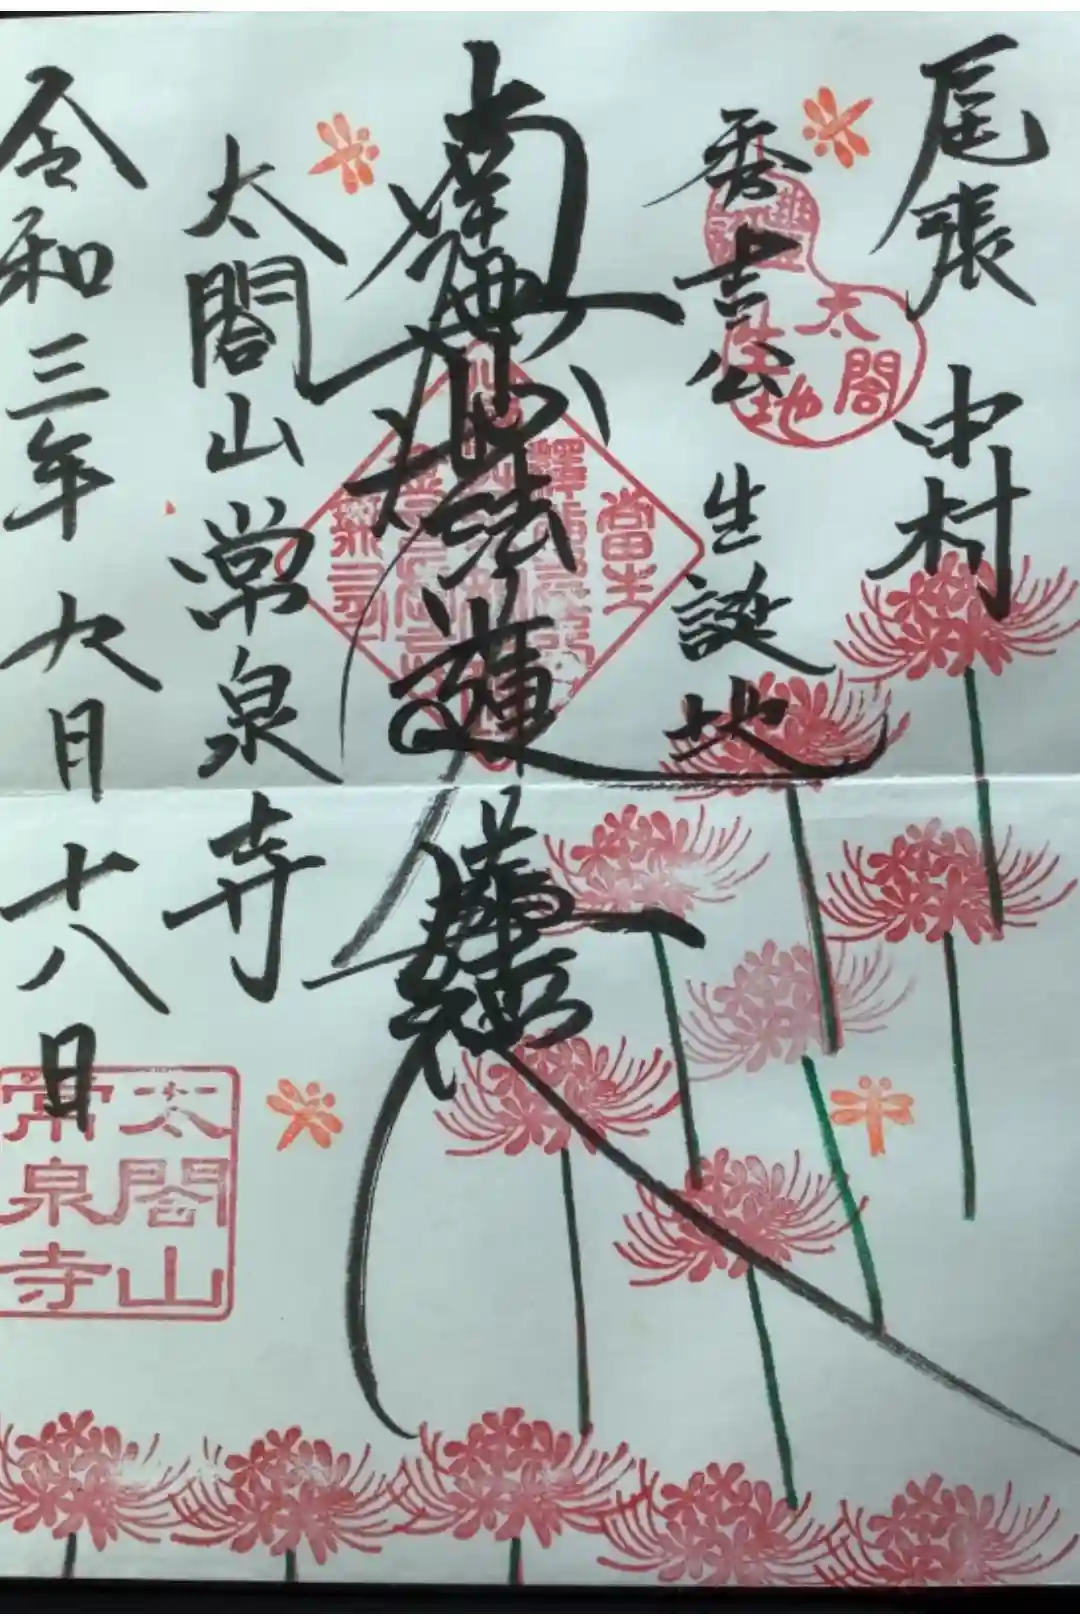 尾張 中村
秀吉公 生誕地
豊臣
太閤
生地
南無妙法蓮華経
太閤山常泉寺
令和三年九月十八日
太閤山
常泉寺